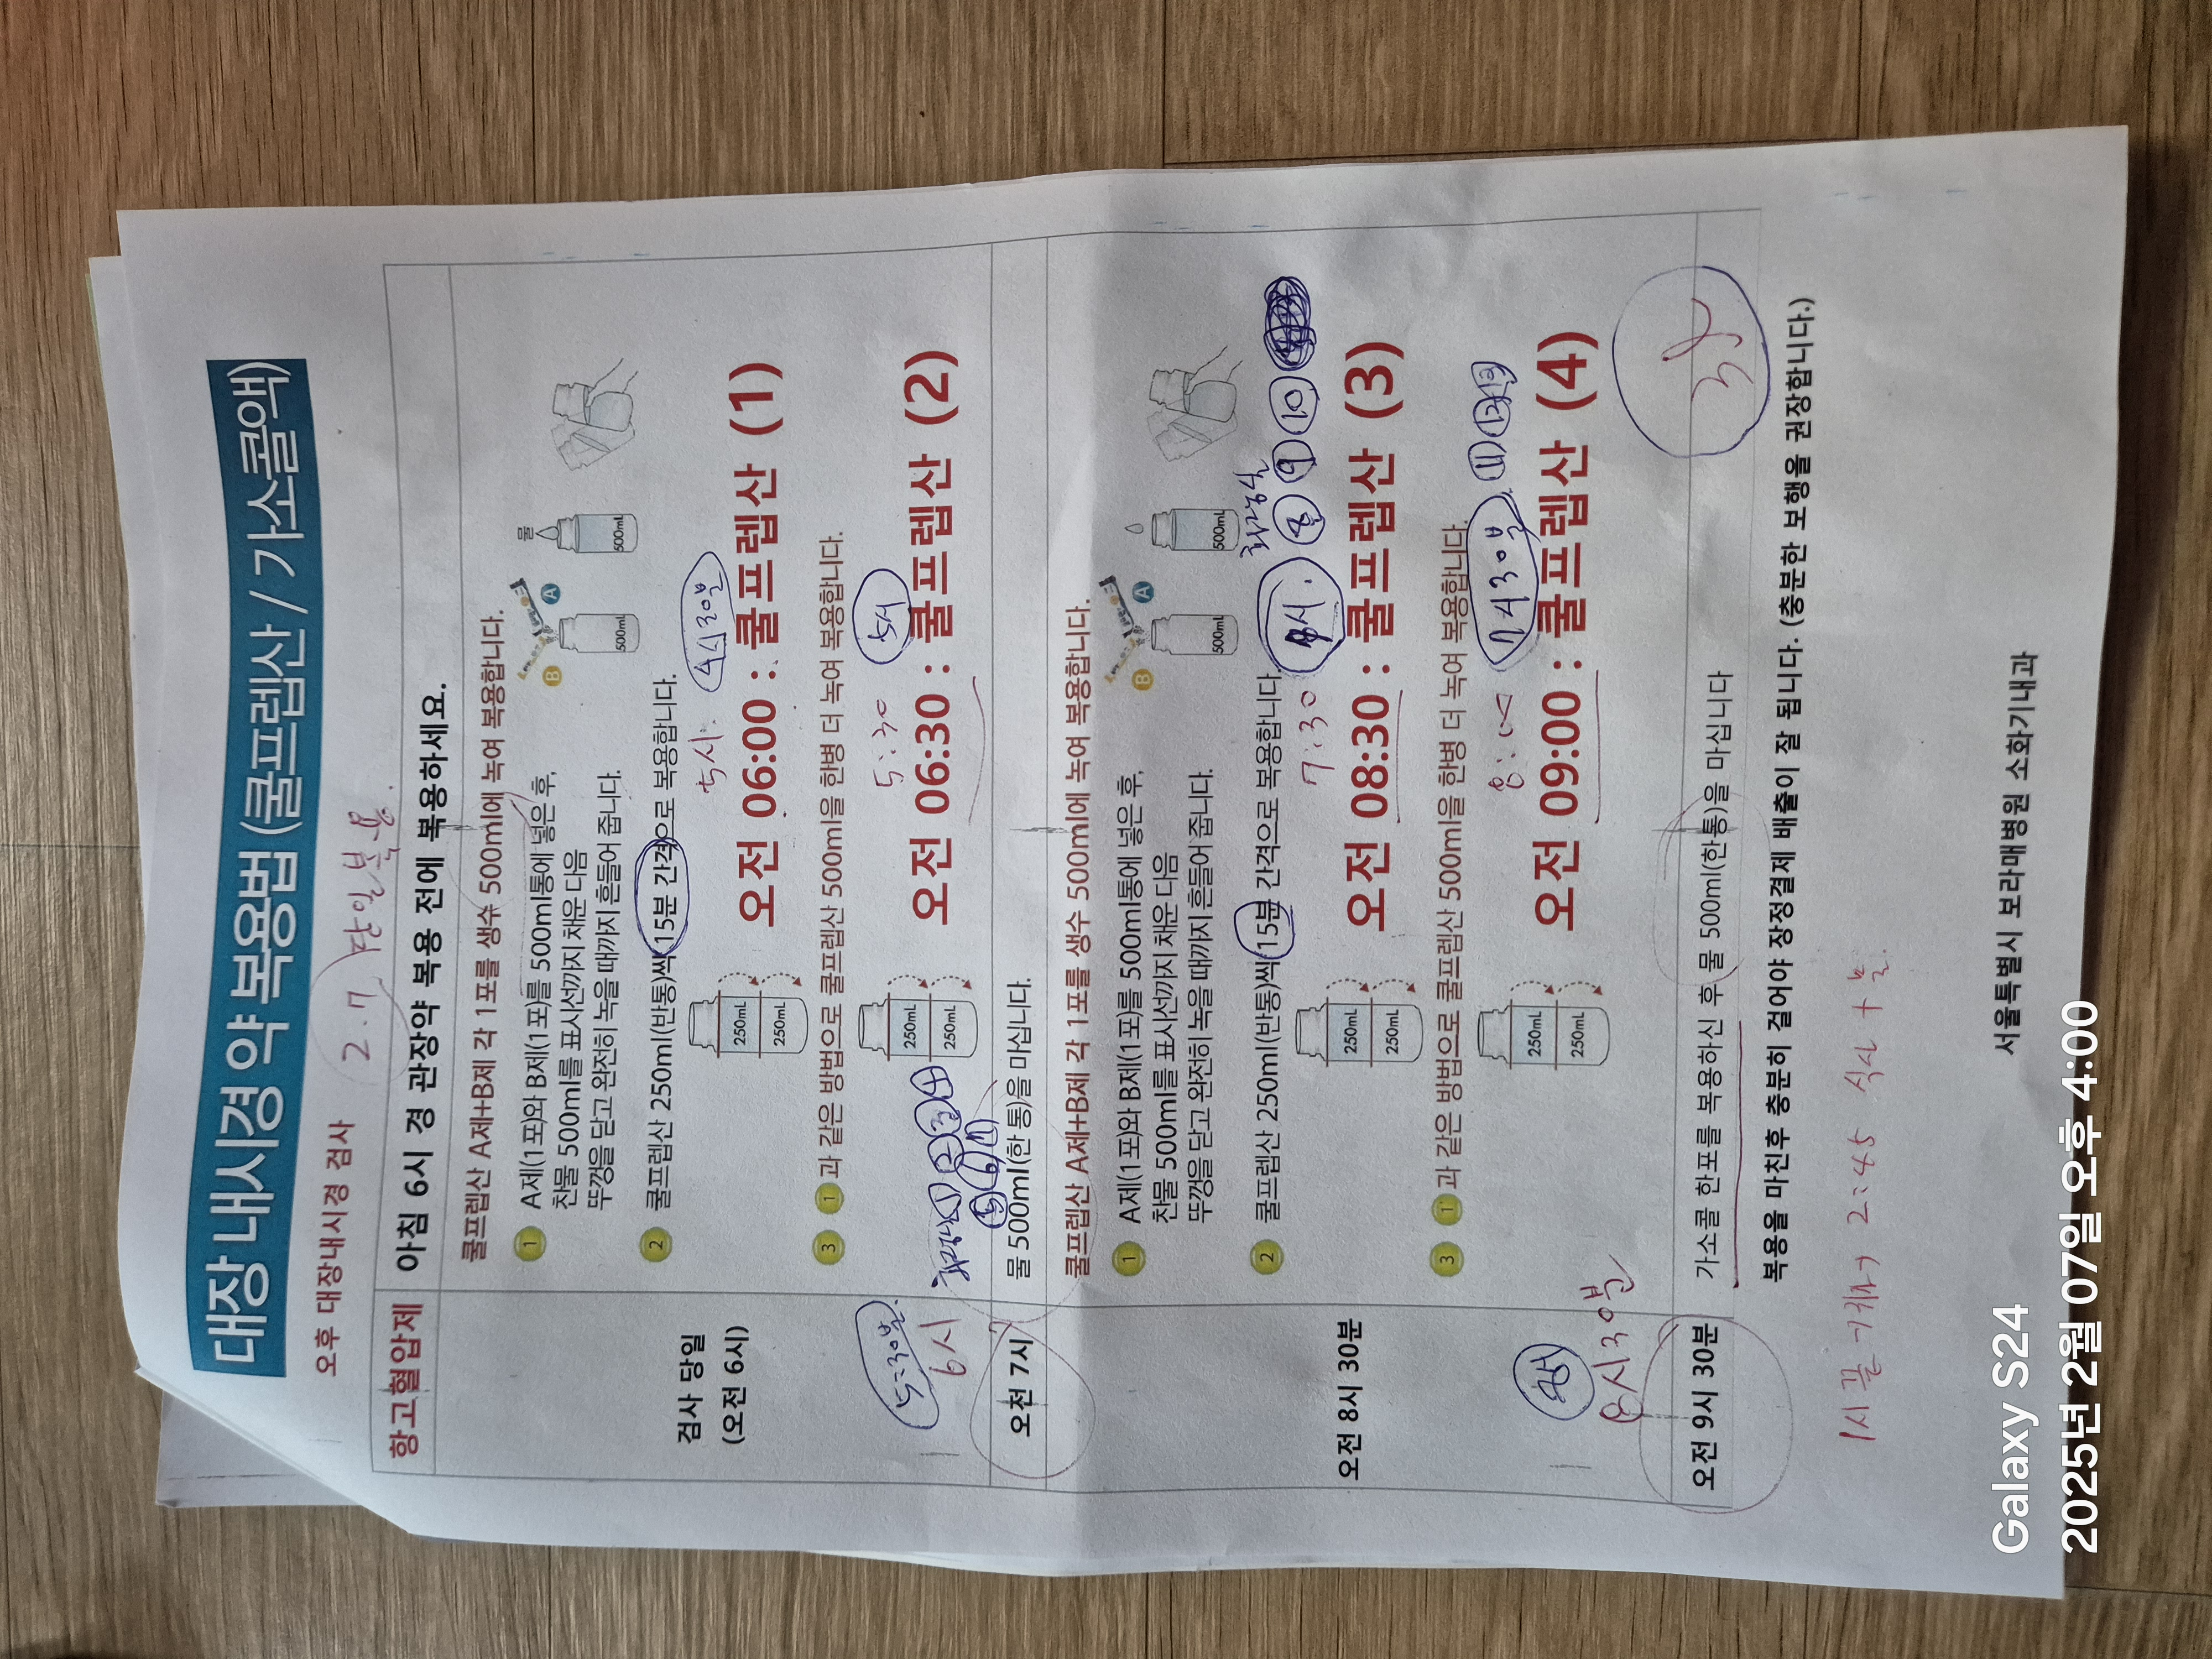 대장 내시경 약 복용법 (쿨프렙산 / 가소콜액)
오후 대장내시경 검사
2.7 당일 복용.
항고혈압제 아침 6시 경 관장약 복용 전에 복용하세요.
쿨프렙산 A제+B제 각 1포를 생수 500ml에 녹여 복용합니다.
1 A제(1포)와 B제(1포)를 500ml통에 넣은 후,
찬물 500ml를 표시선까지 채운 다음
뚜껑을 닫고 완전히 녹을 때까지 흔들어 줍니다.
B A 물
500mL 500mL
2 쿨프렙산 250ml(반통)씩 15분 간격으로 복용합니다.
250mL
250mL
5시. 4시30분
검사 당일
(오전 6시)
오전 06:00 : 쿨프렙산 (1)
3 1 과 같은 방법으로 쿨프렙산 500ml을 한병 더 녹여 복용합니다.
250mL
250mL
5:30 5시
오전 06:30 : 쿨프렙산 (2)
5:30분.
6시
1 2 3 4
5 6
오전 7시 물 500ml(한 통)을 마십니다.
쿨프렙산 A제+B제 각 1포를 생수 500ml에 녹여 복용합니다.
1 A제(1포)와 B제(1포)를 500ml통에 넣은 후,
찬물 500ml를 표시선까지 채운 다음
뚜껑을 닫고 완전히 녹을 때까지 흔들어 줍니다.
B A
500mL 500mL
화장실
2 쿨프렙산 250ml(반통)씩 15분 간격으로 복용합니다.
8 9 10
250mL
250mL
7:30
오전 8시 30분
오전 08:30 : 쿨프렙산 (3)
3 1 과 같은 방법으로 쿨프렙산 500ml을 한병 더 녹여 복용합니다.
250mL
250mL
8:00 7시30분 11 12 13
오전 09:00 : 쿨프렙산 (4)
8시30분
오전 9시 30분 가소콜 한포를 복용하신 후 물 500ml(한통)을 마십니다
복용을 마친후 충분히 걸어야 장정결제 배출이 잘 됩니다. (충분한 보행을 권장합니다.)
2:45 식사 +
서울특별시 보라매병원 소화기내과
Galaxy S24
2025년 2월 07일 오후 4:00